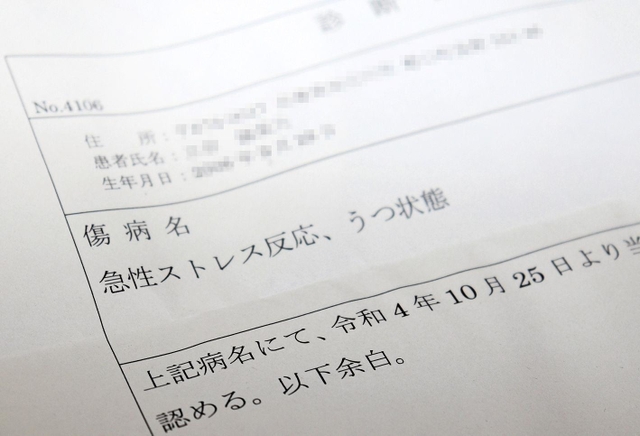 診断
No.4106
住 所：
患者氏名：
生年月日：
傷 病 名
急性ストレス反応、うつ状態
上記病名にて、令和4年10月25日より当
認める。以下余白。